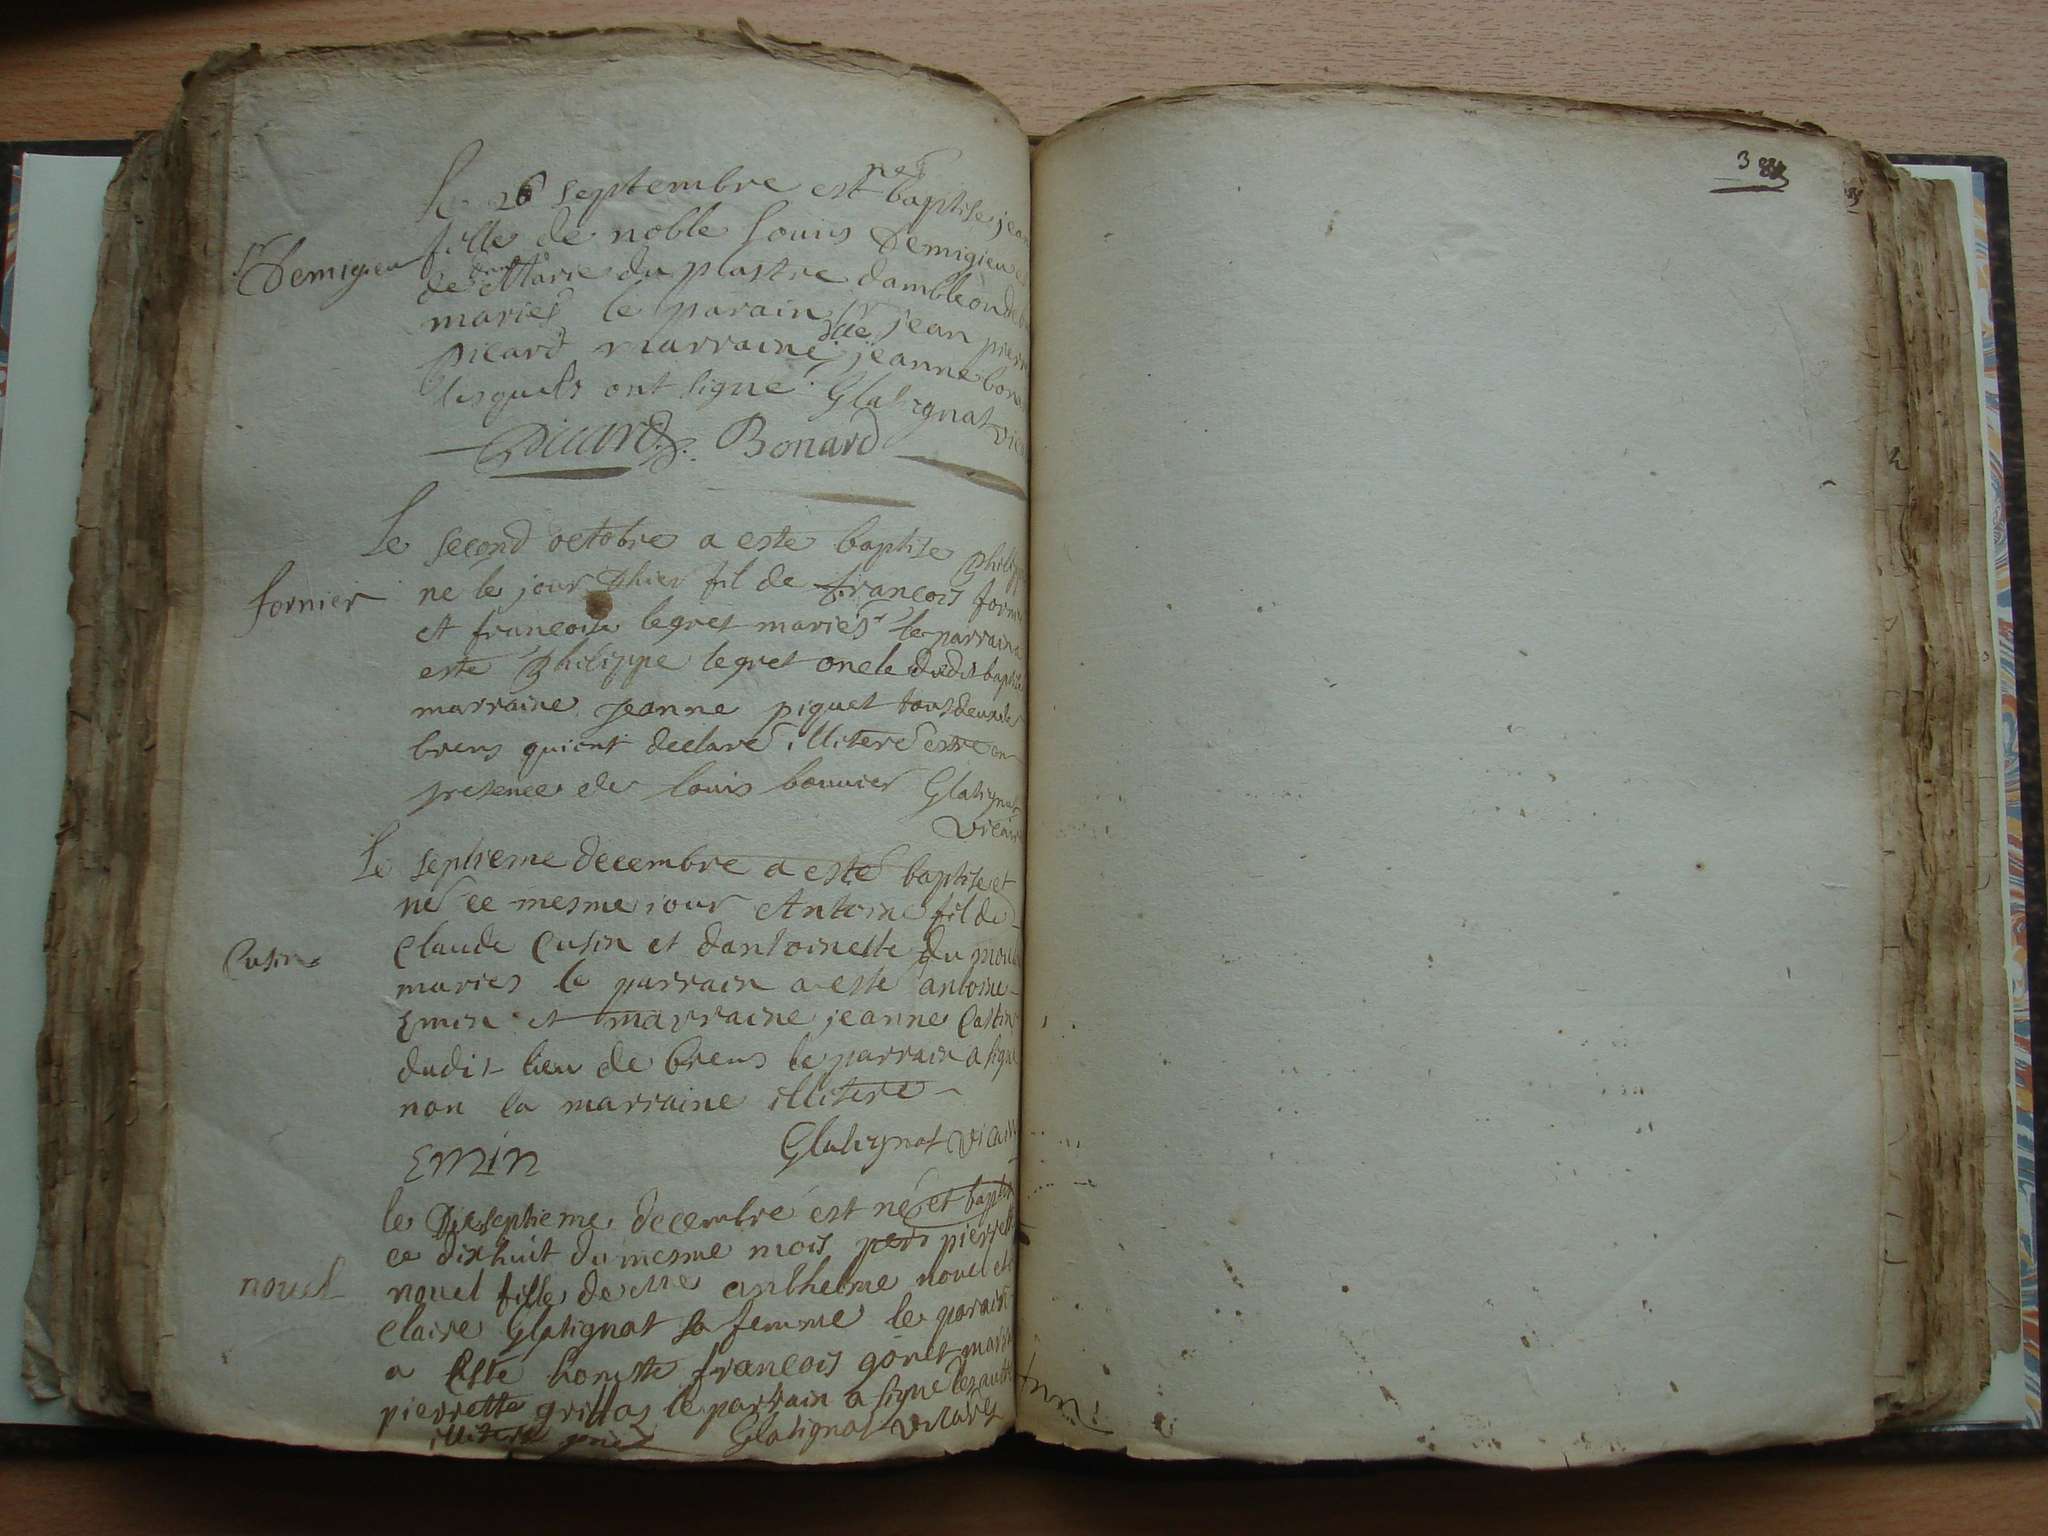 Le 26 septembre est né baptise jean
fille de noble louis Demigieu et
Demigieu
de Marie du plastre dambleon
mariés le parain Sr jean pierre
picard marraine dlle jeanne bona
lesquels ont signe Glatignat vic
Picard Bonard
Le second octobre a este baptise philipp
fornier
ne le jour dhier fil de francois forni
et francoise legret mariés le parrain a
este philippe legret oncle dudit baptise
marraine jeanne piquet tous deux de
brens qui ont declaré illiteré estre en
presence de louis bouvier Glatignat
vicair
Le septieme decembre a esté baptise et
né ce mesme jour Antoine fil de
Cusin
Claude Cusin et dantoinette du moul
maries le parrain a este antoine
Emin et marraine jeanne Castin
dudit lieu de brens le parrain a signe
non la marraine illitere
Emin Glatignat vicair
le Dixseptieme decembre est né et bapt
ce dixhuit du mesme mois pierrett
nouel
nouel fille de Me anthelme nouel et
claire Glatignat sa femme le parain
a Esté honeste francois gonet marr
pierrette grillas le parrain a signe les autr
illitere Glatignat vicaire
3